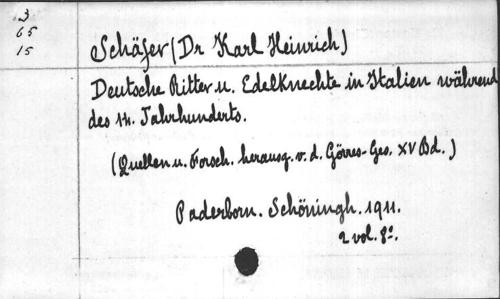 3
65
15
Schäfer (Dr Karl Heinrich)
Deutsche Ritter u. Edelknechte in Italien während
des 14. Jahrhunderts.
(Quellen u. Forsch. herausg. v. d. Görres-Ges. XV Bd.)
Paderborn. Schöningh. 1911.
2 vol. 8º.